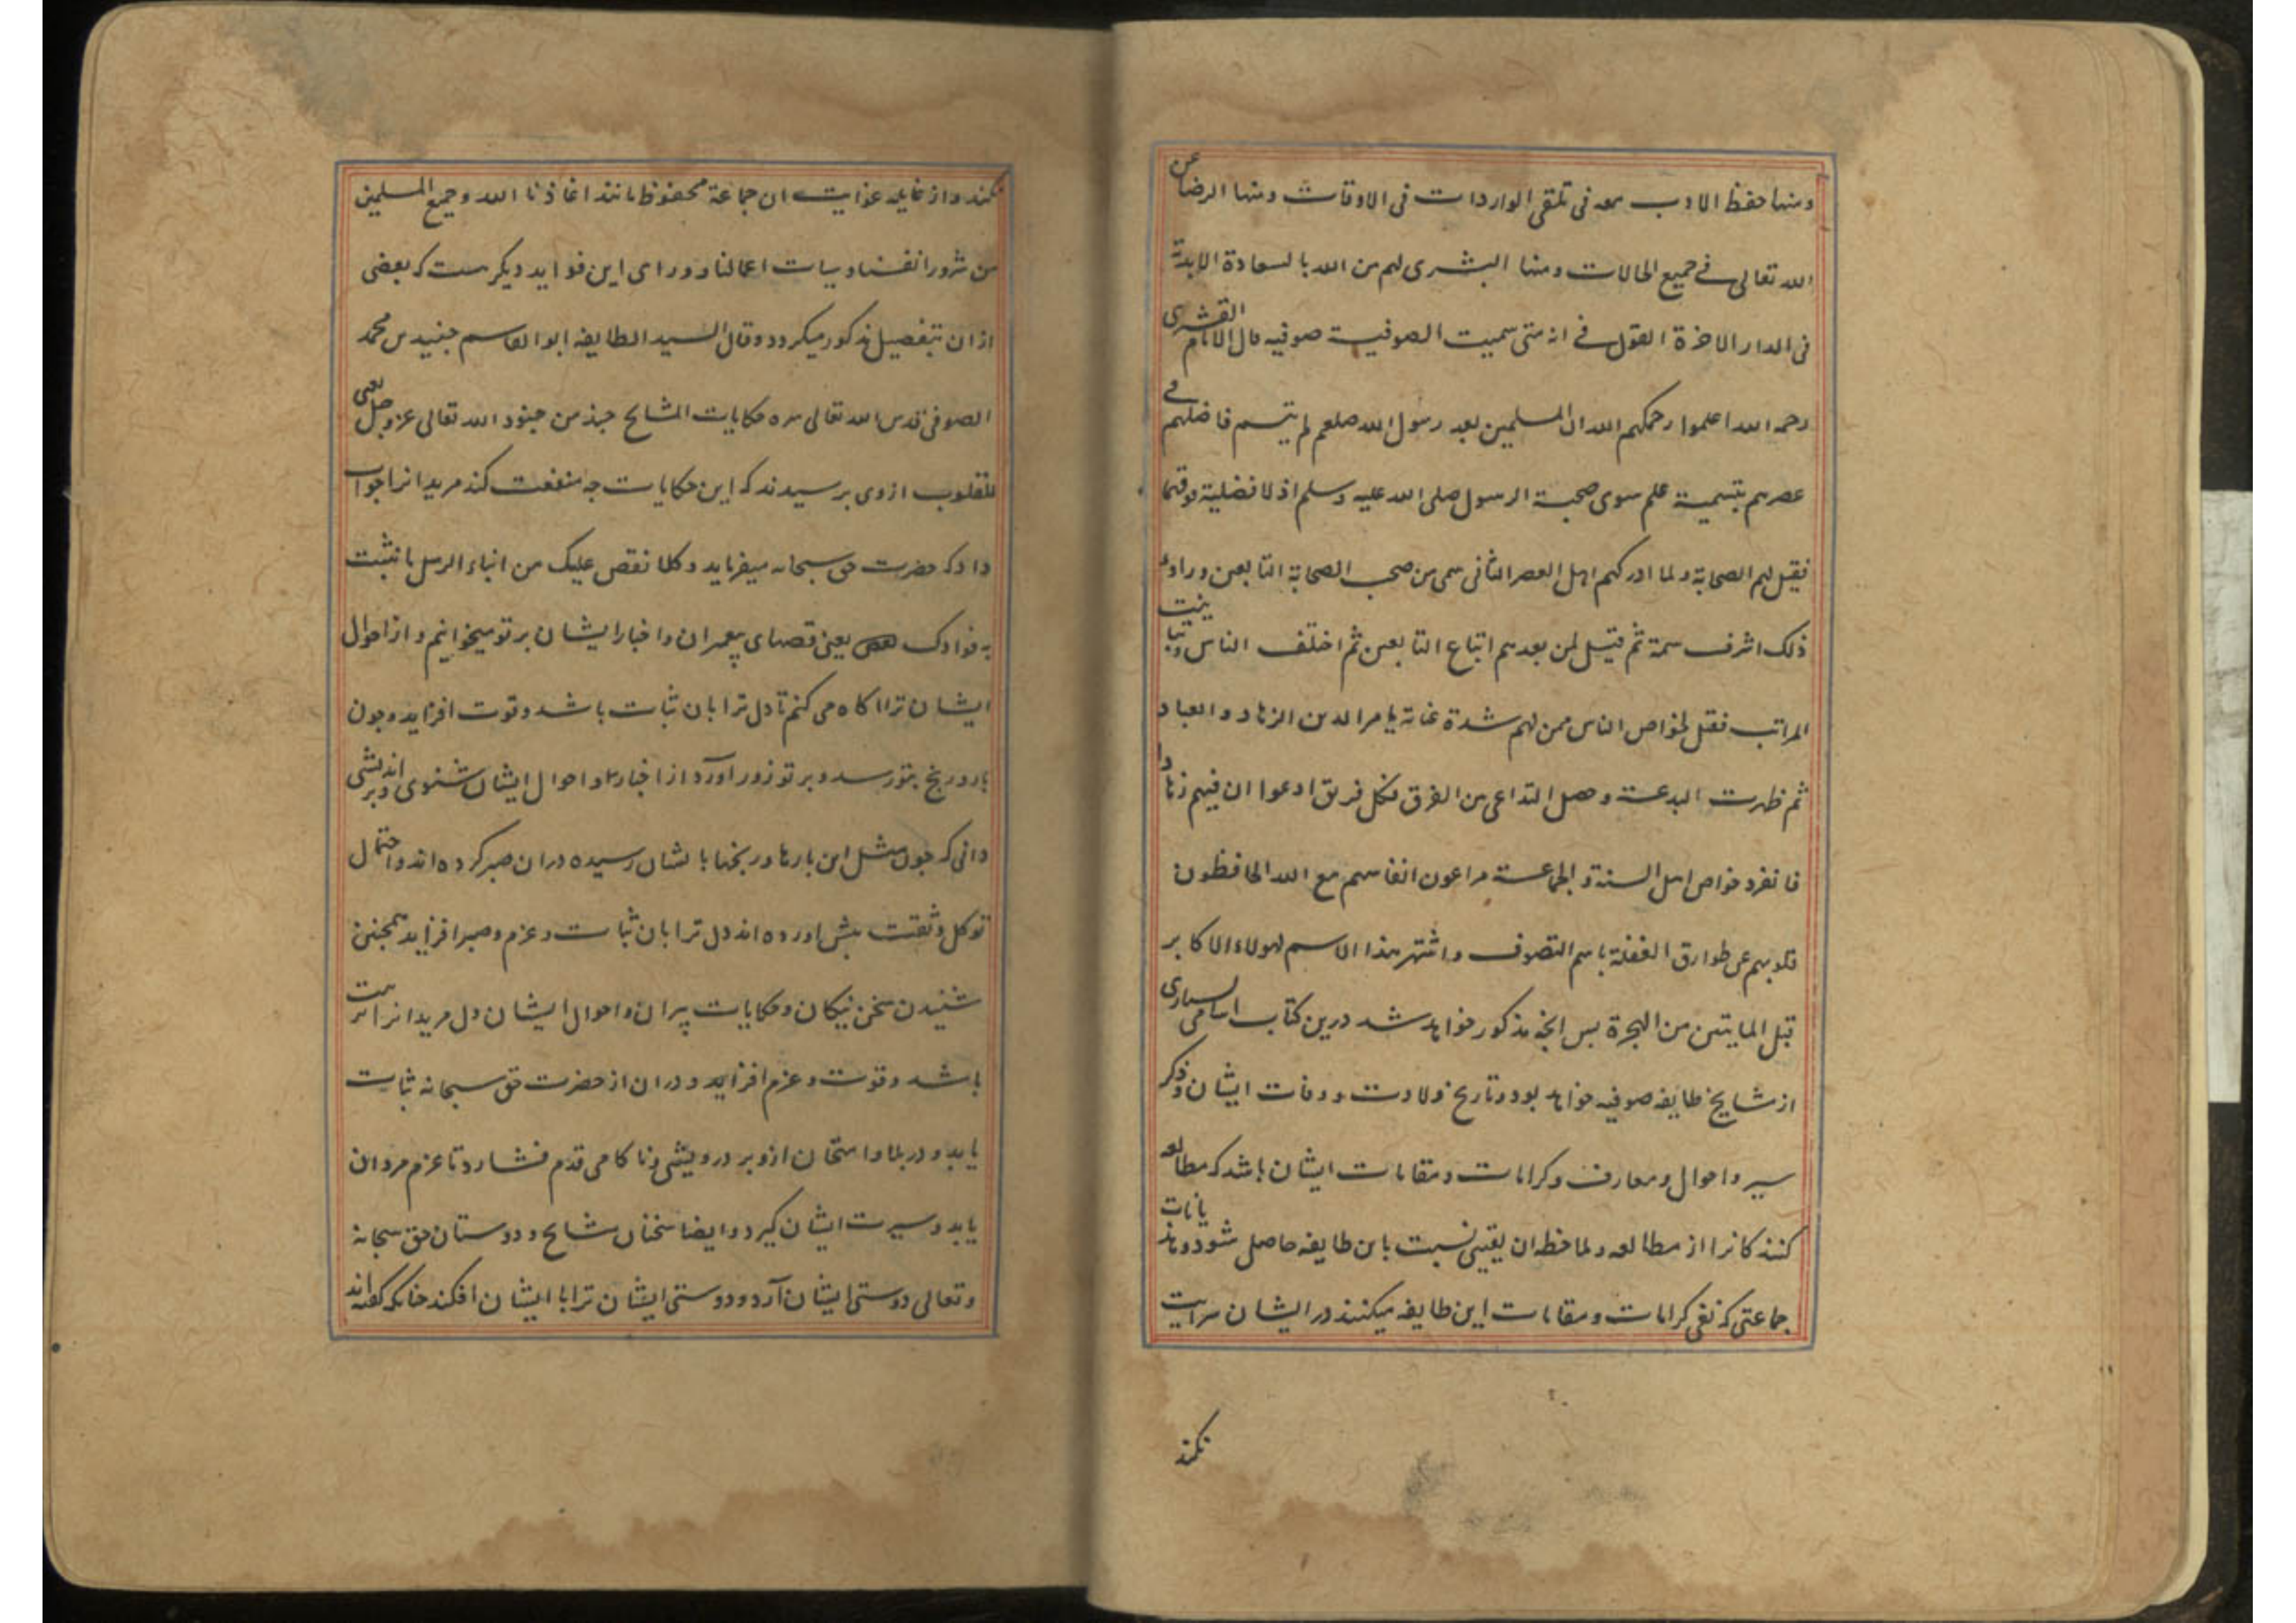 ومنها حفظ الادب معه فی تلقی الواردات فی الاوقات ومنها الرضا عن
الله تعالی فی جمیع الحالات ومنها البشری لهم من الله بالسعادة الابدیة
فی الدار الاخرة القول فی انه متی سمیت الصوفیة صوفیه قال الامام القشیری
رحمه الله اعلموا رحمکم الله ان المسلمین بعد رسول الله صلعم لم یتسم فاضلهم فی
عصرهم بتسمیة علم سوی صحبة الرسول صلی الله علیه وسلم اذ لا فضلیة فوقها
فقیل لهم الصحابة ولما ادرکهم اهل العصر الثانی سمی من صحب الصحابة التابعین وراوا
ذلک اشرف سمة ثم قیل لمن بعدهم اتباع التابعین ثم اختلف الناس وتباینت
المراتب فقیل لخواص الناس ممن لهم شدة عنایة بامر الدین الزهاد والعباد
ثم ظهرت البدعة وحصل التداعی من الفرق فکل فریق ادعوا ان فیهم زهادا
فانفرد خواص اهل السنة والجماعة مراعون انفاسهم مع الله الحافظون
قلوبهم عن طوارق الغفلة باسم التصوف واشتهر هذا الاسم لهولاء الاکابر
قبل المایتین من الهجرة بس انچه مذکور خواهد شد درین کتاب اسامی بسیاری
از مشایخ طایفه صوفیه خواهد بود و تاریخ ولادت و وفات ایشان و ذکر
سیر و احوال و معارف و کرامات و مقامات ایشان باشد که مطالعه
کنندکانرا از مطالعه و ملاحظه ان یقینی نسبت باین طایفه حاصل شود و
جماعتی که نفی کرامات و مقامات این طایفه میکنند در ایشان سرایت
نکند
نکند و از غایله ان جماعة محفوظ مانند اعاذنا الله وجمیع المسلمین
من شرور انفسنا وسیات اعمالنا و ورای این فواید دیکر ست که بعضی
ازان بتفصیل مذکور میکردد وقال السید الطایفه ابو القاسم جنید بن محمد
الصوفی قدس الله تعالی سره حکایات المشایخ جند من جنود الله تعالی عزوجل یعنی
للقلوب از وی برسیدند که این حکایات جه منفعت کند مریدانرا جواب
داد که حضرت حق سبحانه میفرماید وکلا نقص علیک من انباء الرسل ما نثبت
به فوادک یعنی قصهای پیغمبران و اخبار ایشان بر تو میخوانیم و از احوال
ایشان ترا اکاه می کنم تا دل ترا بان ثبات باشد و قوت افزاید و جون
بار و رنج بتو رسد و بر تو زور اورد از اخبار و احوال ایشان شنوی و براندیشی
دانی که جون مثل این بارها و رنجها بایشان رسیده دران صبر کرده اند و احتمال
توکل و ثقت بیش اورده اند دل ترا بان ثبات و عزم و صبر افزاید همجنین
شنیدن سخن نیکان و حکایات پیران و احوال ایشان دل مریدانرا تربیت
باشد و قوت و عزم افزاید و دران از حضرت حق سبحانه ثبات
یابد و در بلا و امتحان ازو بر درویشی و ناکامی قدم فشارد تا عزم مردان
یابد و سیرت ایشان کیرد و ایضا سخنان مشایخ و دوستان حق سبحانه
وتعالی دوستی ایشان آرد و دوستی ایشان ترا با ایشان افکند جنانکه کفته اند